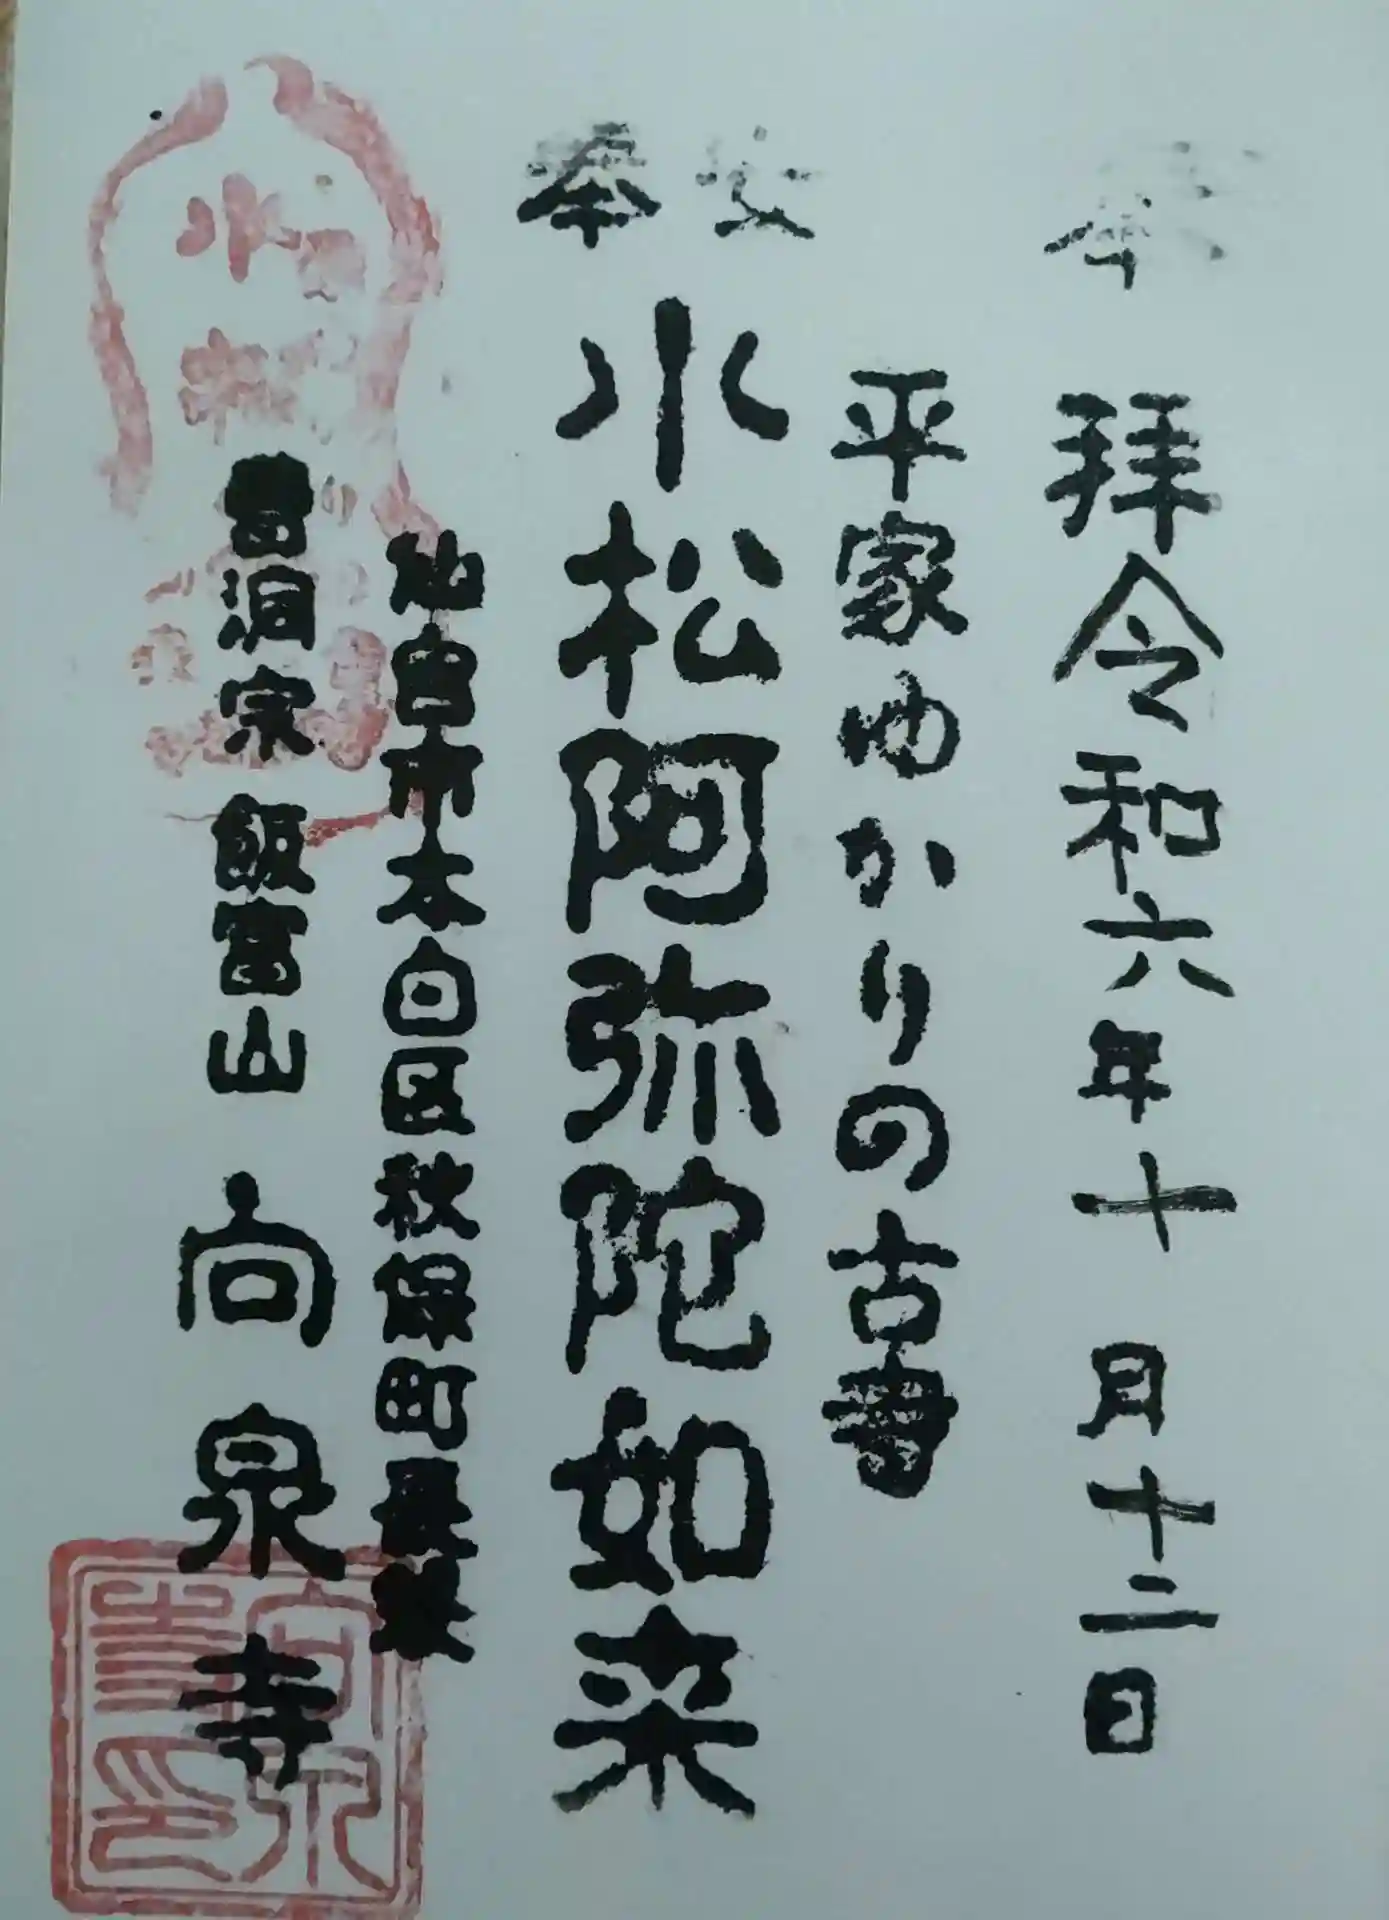 奉拝 令和六年十月十二日
平家ゆかりの古書
奉
小松阿弥陀如来
仙台市太白区秋保町長袋
曹洞宗 飯富山 向泉寺